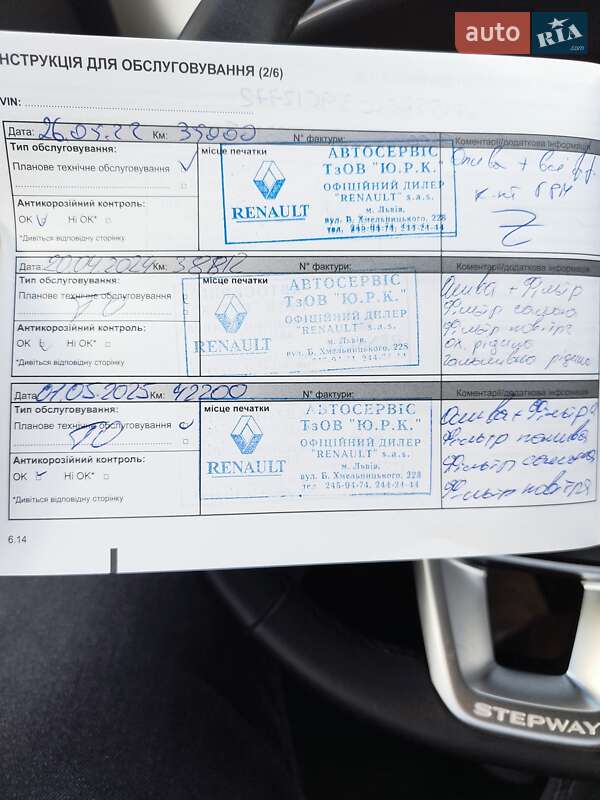 auto RIA.com
НСТРУКЦІЯ ДЛЯ ОБСЛУГОВУВАННЯ (2/6)
VIN:
Дата: 26.05.22 Км: 35000 N° фактури: Коментарі/додаткова інформація
Тип обслуговування:
Планове технічне обслуговування
Антикорозійний контроль:
ОК Ні ОК*
*Дивіться відповідну сторінку
місце печатки
RENAULT
АВТОСЕРВІС
ТзОВ "Ю.Р.К."
ОФІЦІЙНИЙ ДИЛЕР
"RENAULT" s.a.s.
м. Львів,
вул. Б. Хмельницького, 228
тел. 245-94-74, 244-21-44
Олива + всі
к-кт ГРМ
Дата: 20.04.2024 Км: 38812 N° фактури: Коментарі/додаткова інформація
Тип обслуговування:
Планове технічне обслуговування
ТО
Антикорозійний контроль:
ОК Ні ОК*
*Дивіться відповідну сторінку
Місце печатки
RENAULT
АВТОСЕРВІС
ТзОВ "Ю.Р.К."
ОФІЦІЙНИЙ ДИЛЕР
"RENAULT" s.a.s.
м. Львів,
вул. Б. Хмельницького, 228
Олива + Фільтр
Фільтр салону
Фільтр повітря
Гальмівна рідина
Дата: 01.05.2025 Км: 42200 N° фактури: Коментарі/додаткова інформація
Тип обслуговування:
Планове технічне обслуговування
ТО
Антикорозійний контроль:
ОК Ні ОК*
*Дивіться відповідну сторінку
місце печатки
RENAULT
АВТОСЕРВІС
ТзОВ "Ю.Р.К."
ОФІЦІЙНИЙ ДИЛЕР
"RENAULT" s.a.s.
м. Львів,
вул. Б. Хмельницького, 228
тел. 245-94-74, 244-21-44
Олива + Фільтр
Фільтр палива
Фільтр салона
Фільтр повітря
6.14
STEPWAY